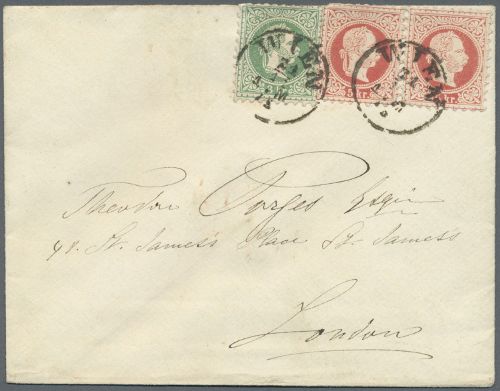 WIEN
WIEN
5 Kr.
Kr.
Theodor Porges Esqr
48. St. James's Place St. James's
London